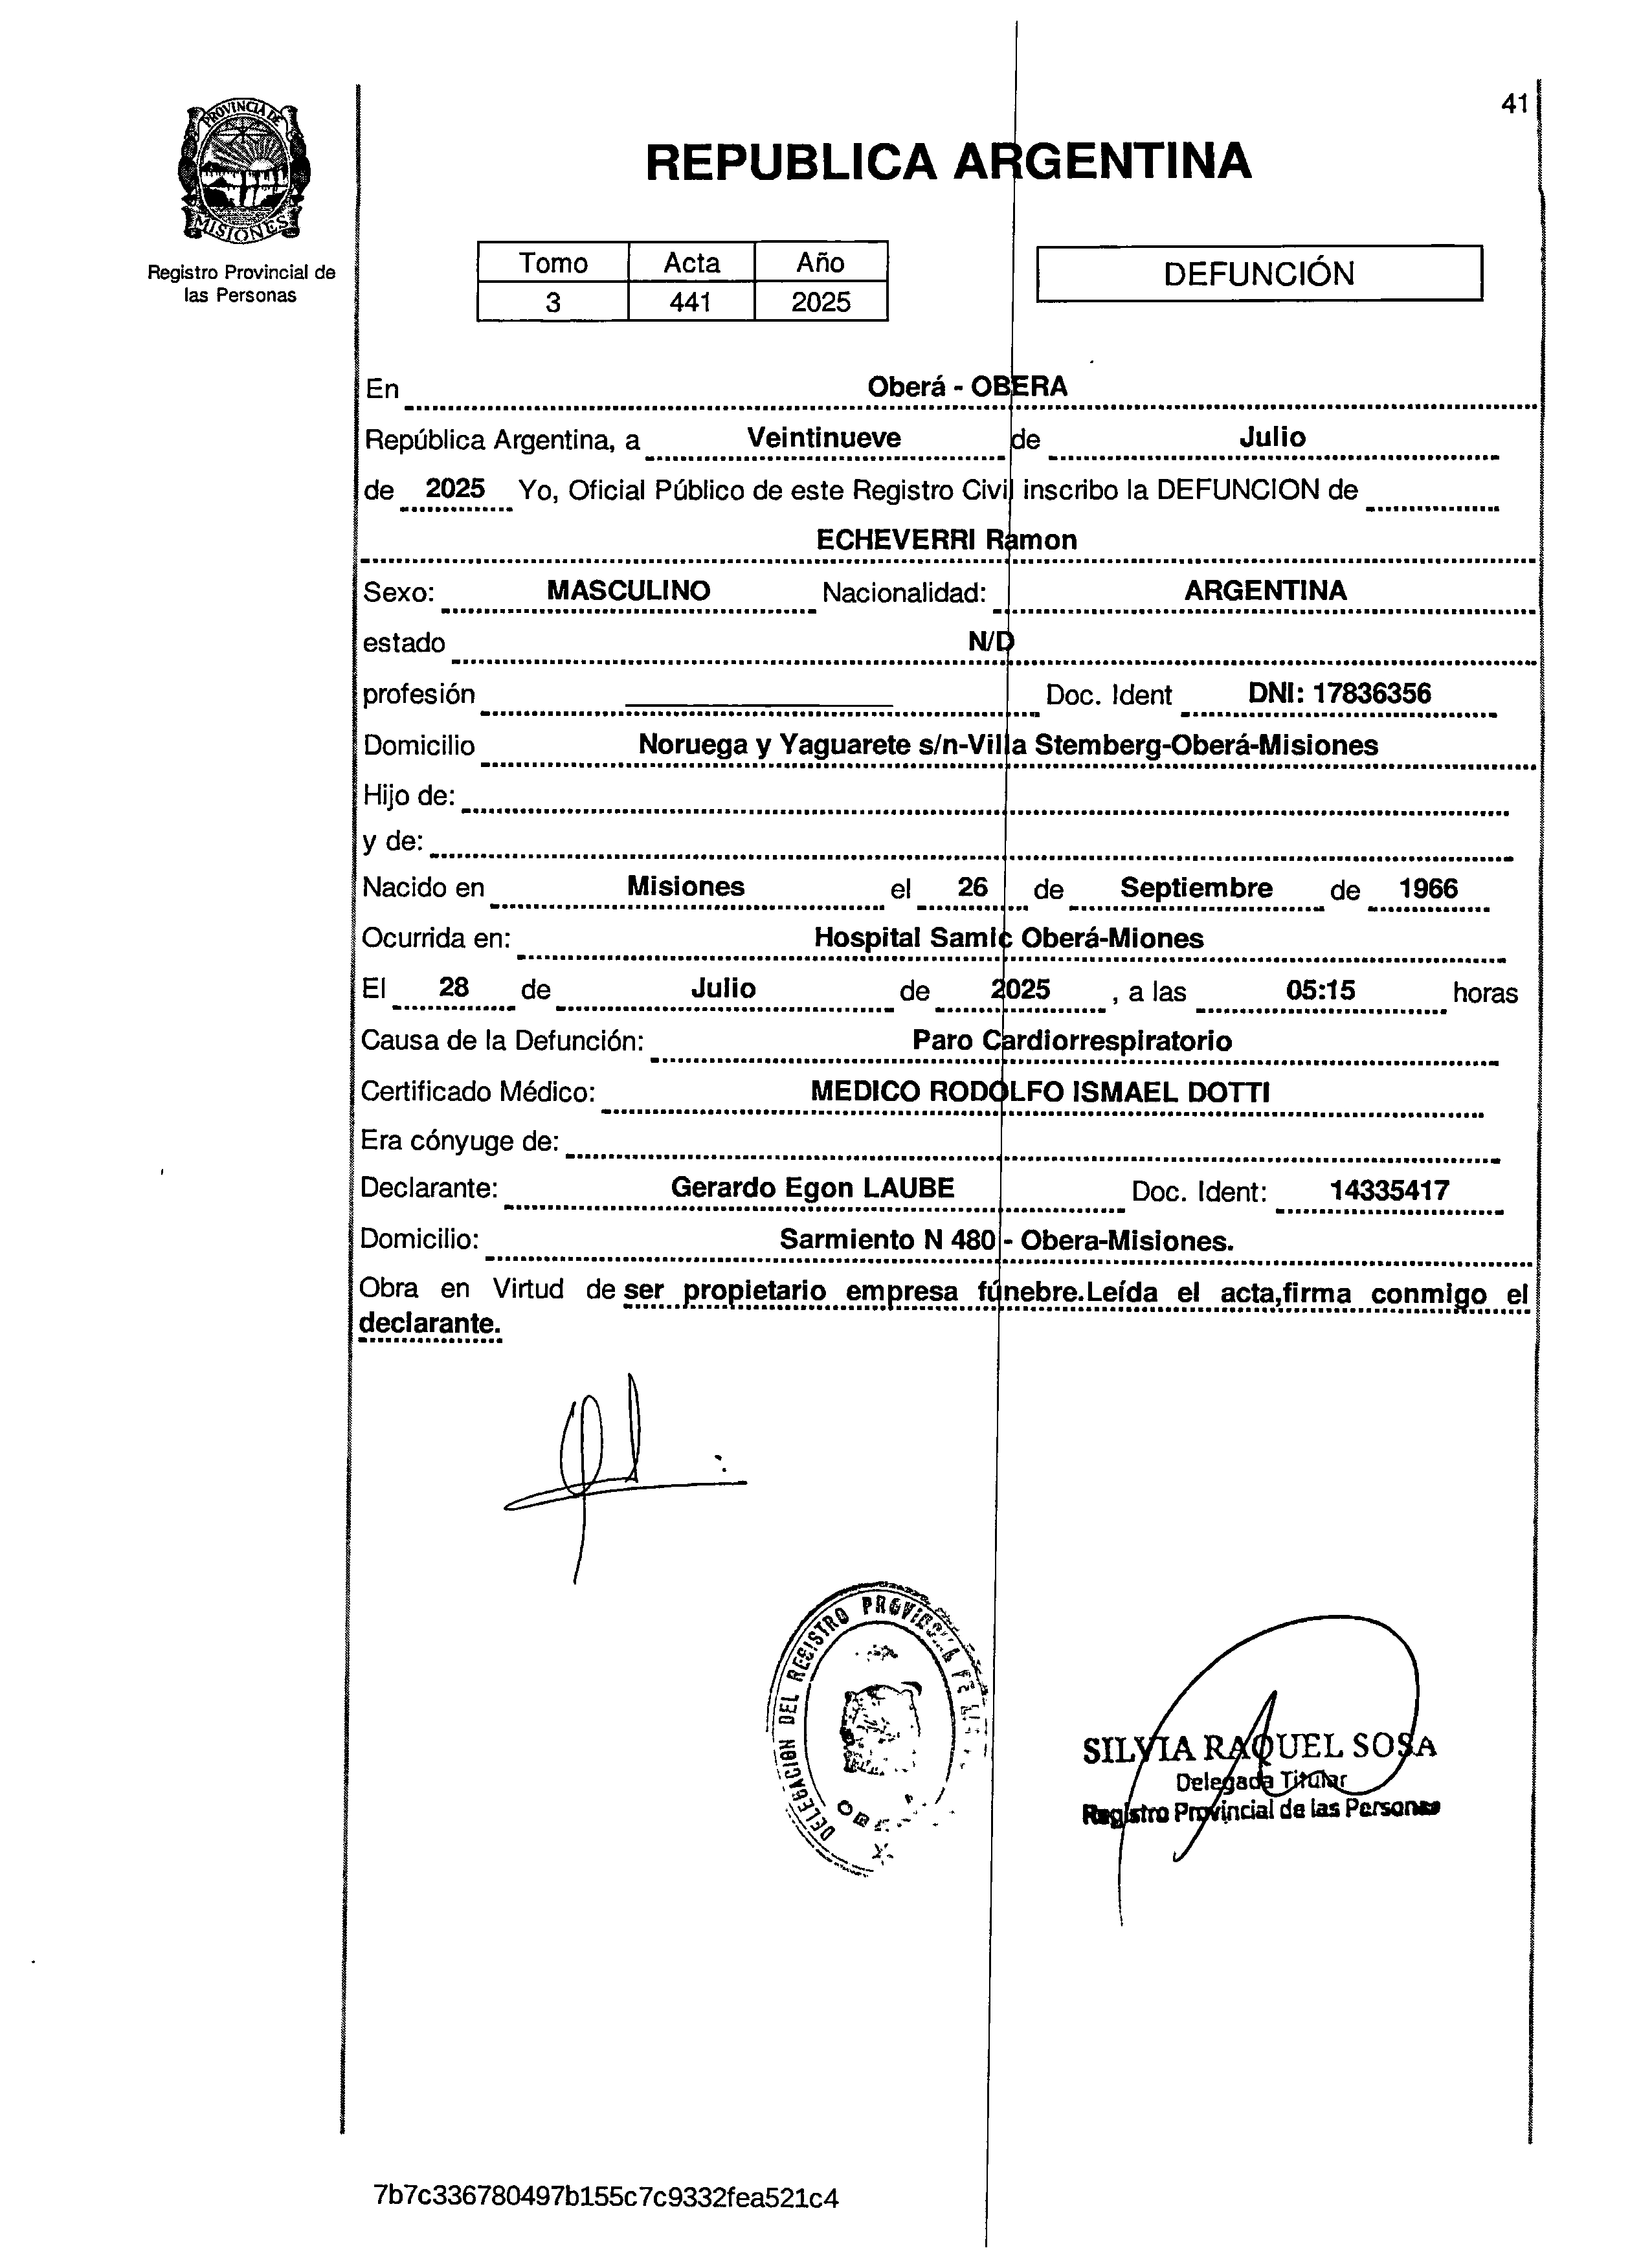 41
PROVINCIA DE
MISIONES
Registro Provincial de
las Personas
REPUBLICA ARGENTINA
Tomo Acta Año
3 441 2025
DEFUNCIÓN
En Oberá - OBERA
República Argentina, a Veintinueve de Julio
de 2025 Yo, Oficial Público de este Registro Civil inscribo la DEFUNCION de
ECHEVERRI Ramon
Sexo: MASCULINO Nacionalidad: ARGENTINA
estado N/D
profesión Doc. Ident DNI: 17836356
Domicilio Noruega y Yaguarete s/n-Villa Stemberg-Oberá-Misiones
Hijo de:
y de:
Nacido en Misiones el 26 de Septiembre de 1966
Ocurrida en: Hospital Samic Oberá-Miones
El 28 de Julio de 2025 , a las 05:15 horas
Causa de la Defunción: Paro Cardiorrespiratorio
Certificado Médico: MEDICO RODOLFO ISMAEL DOTTI
Era cónyuge de:
Declarante: Gerardo Egon LAUBE Doc. Ident: 14335417
Domicilio: Sarmiento N 480 - Obera-Misiones.
Obra en Virtud de ser propietario empresa fúnebre.Leída el acta,firma conmigo el
declarante.
DELEGACION DEL REGISTRO
SILVIA RAQUEL SOSA
Delegada Titular
Registro Provincial de las Personas
7b7c336780497b155c7c9332fea521c4